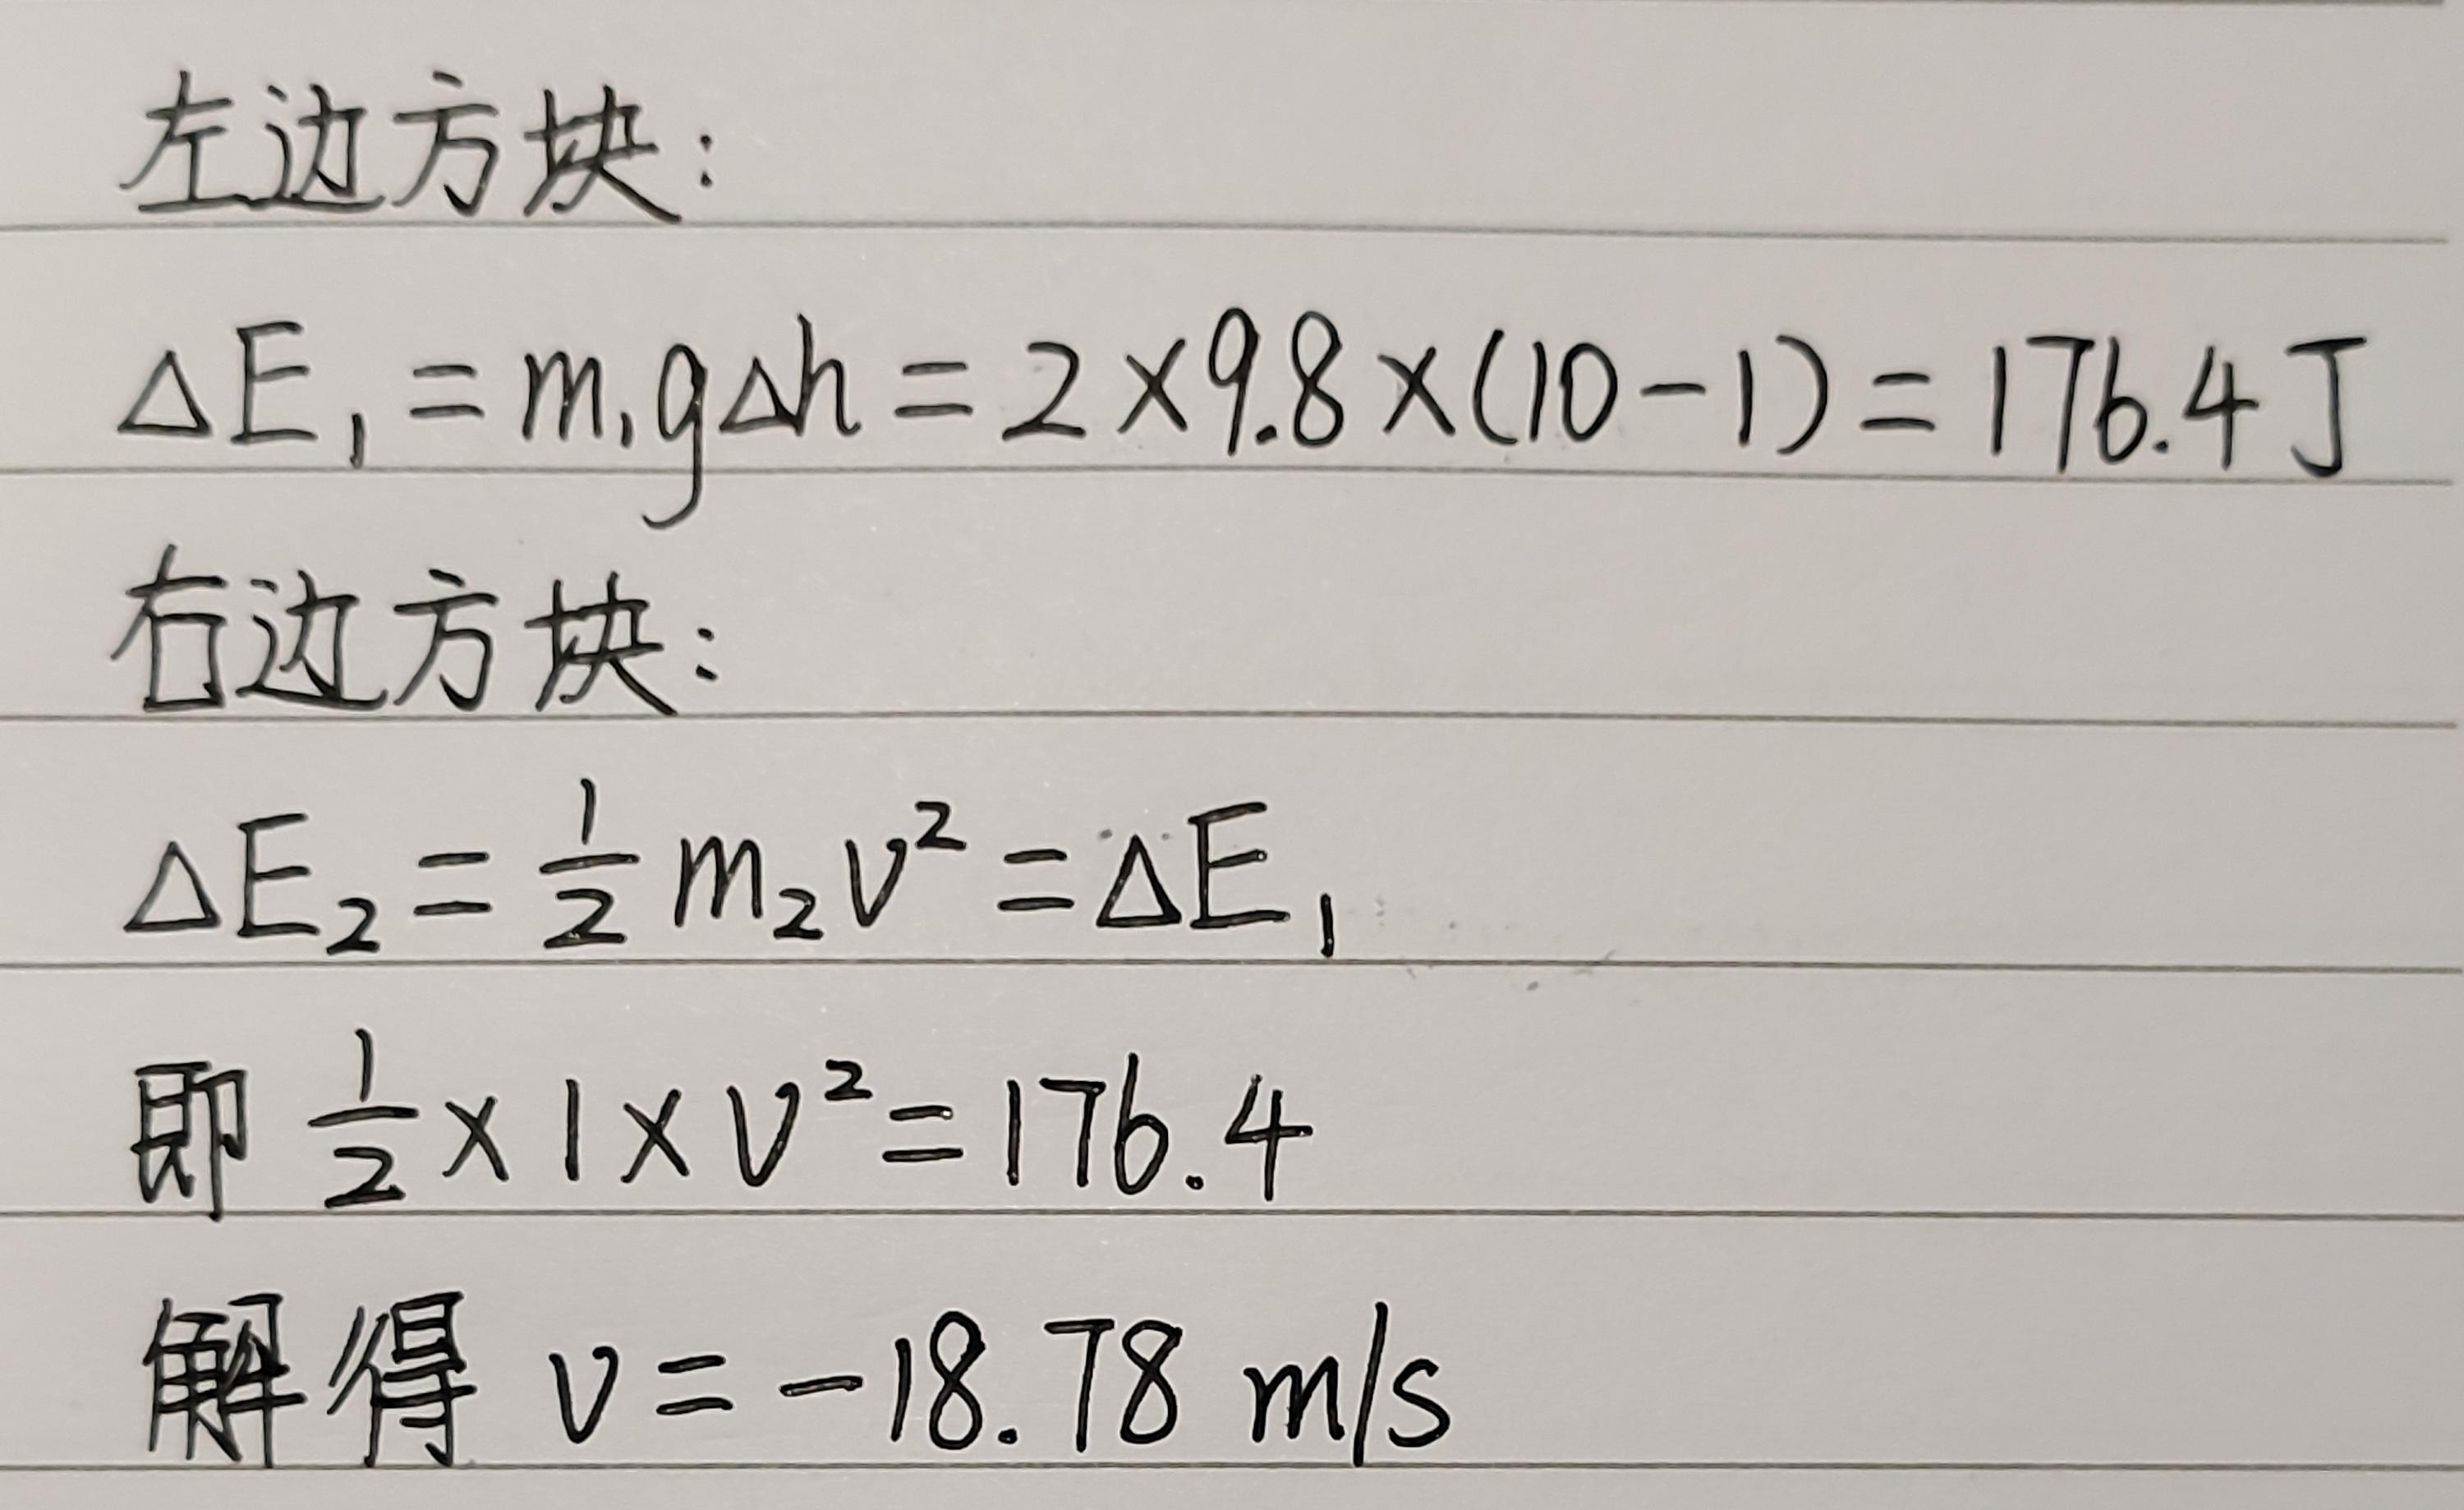 左边方块:
ΔE₁ = m₁gΔh = 2×9.8×(10-1) = 176.4J
右边方块:
ΔE₂ = 1/2 m₂v² = ΔE₁
即 1/2 × 1 × v² = 176.4
解得 v = -18.78 m/s